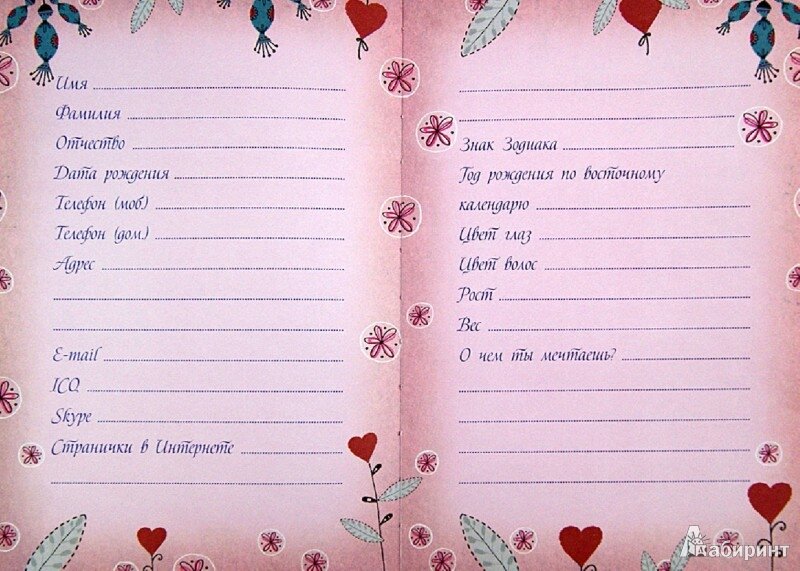 Имя
Фамилия
Отчество
Дата рождения
Телефон (моб.)
Телефон (дом.)
Адрес
E-mail
ICQ
Skype
Странички в Интернете
Знак Зодиака
Год рождения по восточному
календарю
Цвет глаз
Цвет волос
Рост
Вес
О чем ты мечтаешь?
Лабиринт